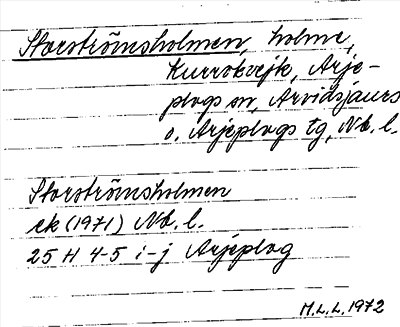 Storströmsholmen, holme,
Kurrokvejk, Arje-
plogs sn, Arvidsjaurs
o. Arjeplogs tg, Nb. l.
Storströmsholmen
ek (1971) Nb. l.
25 H 4-5 i-j Arjeplog
M.L.L. 1972